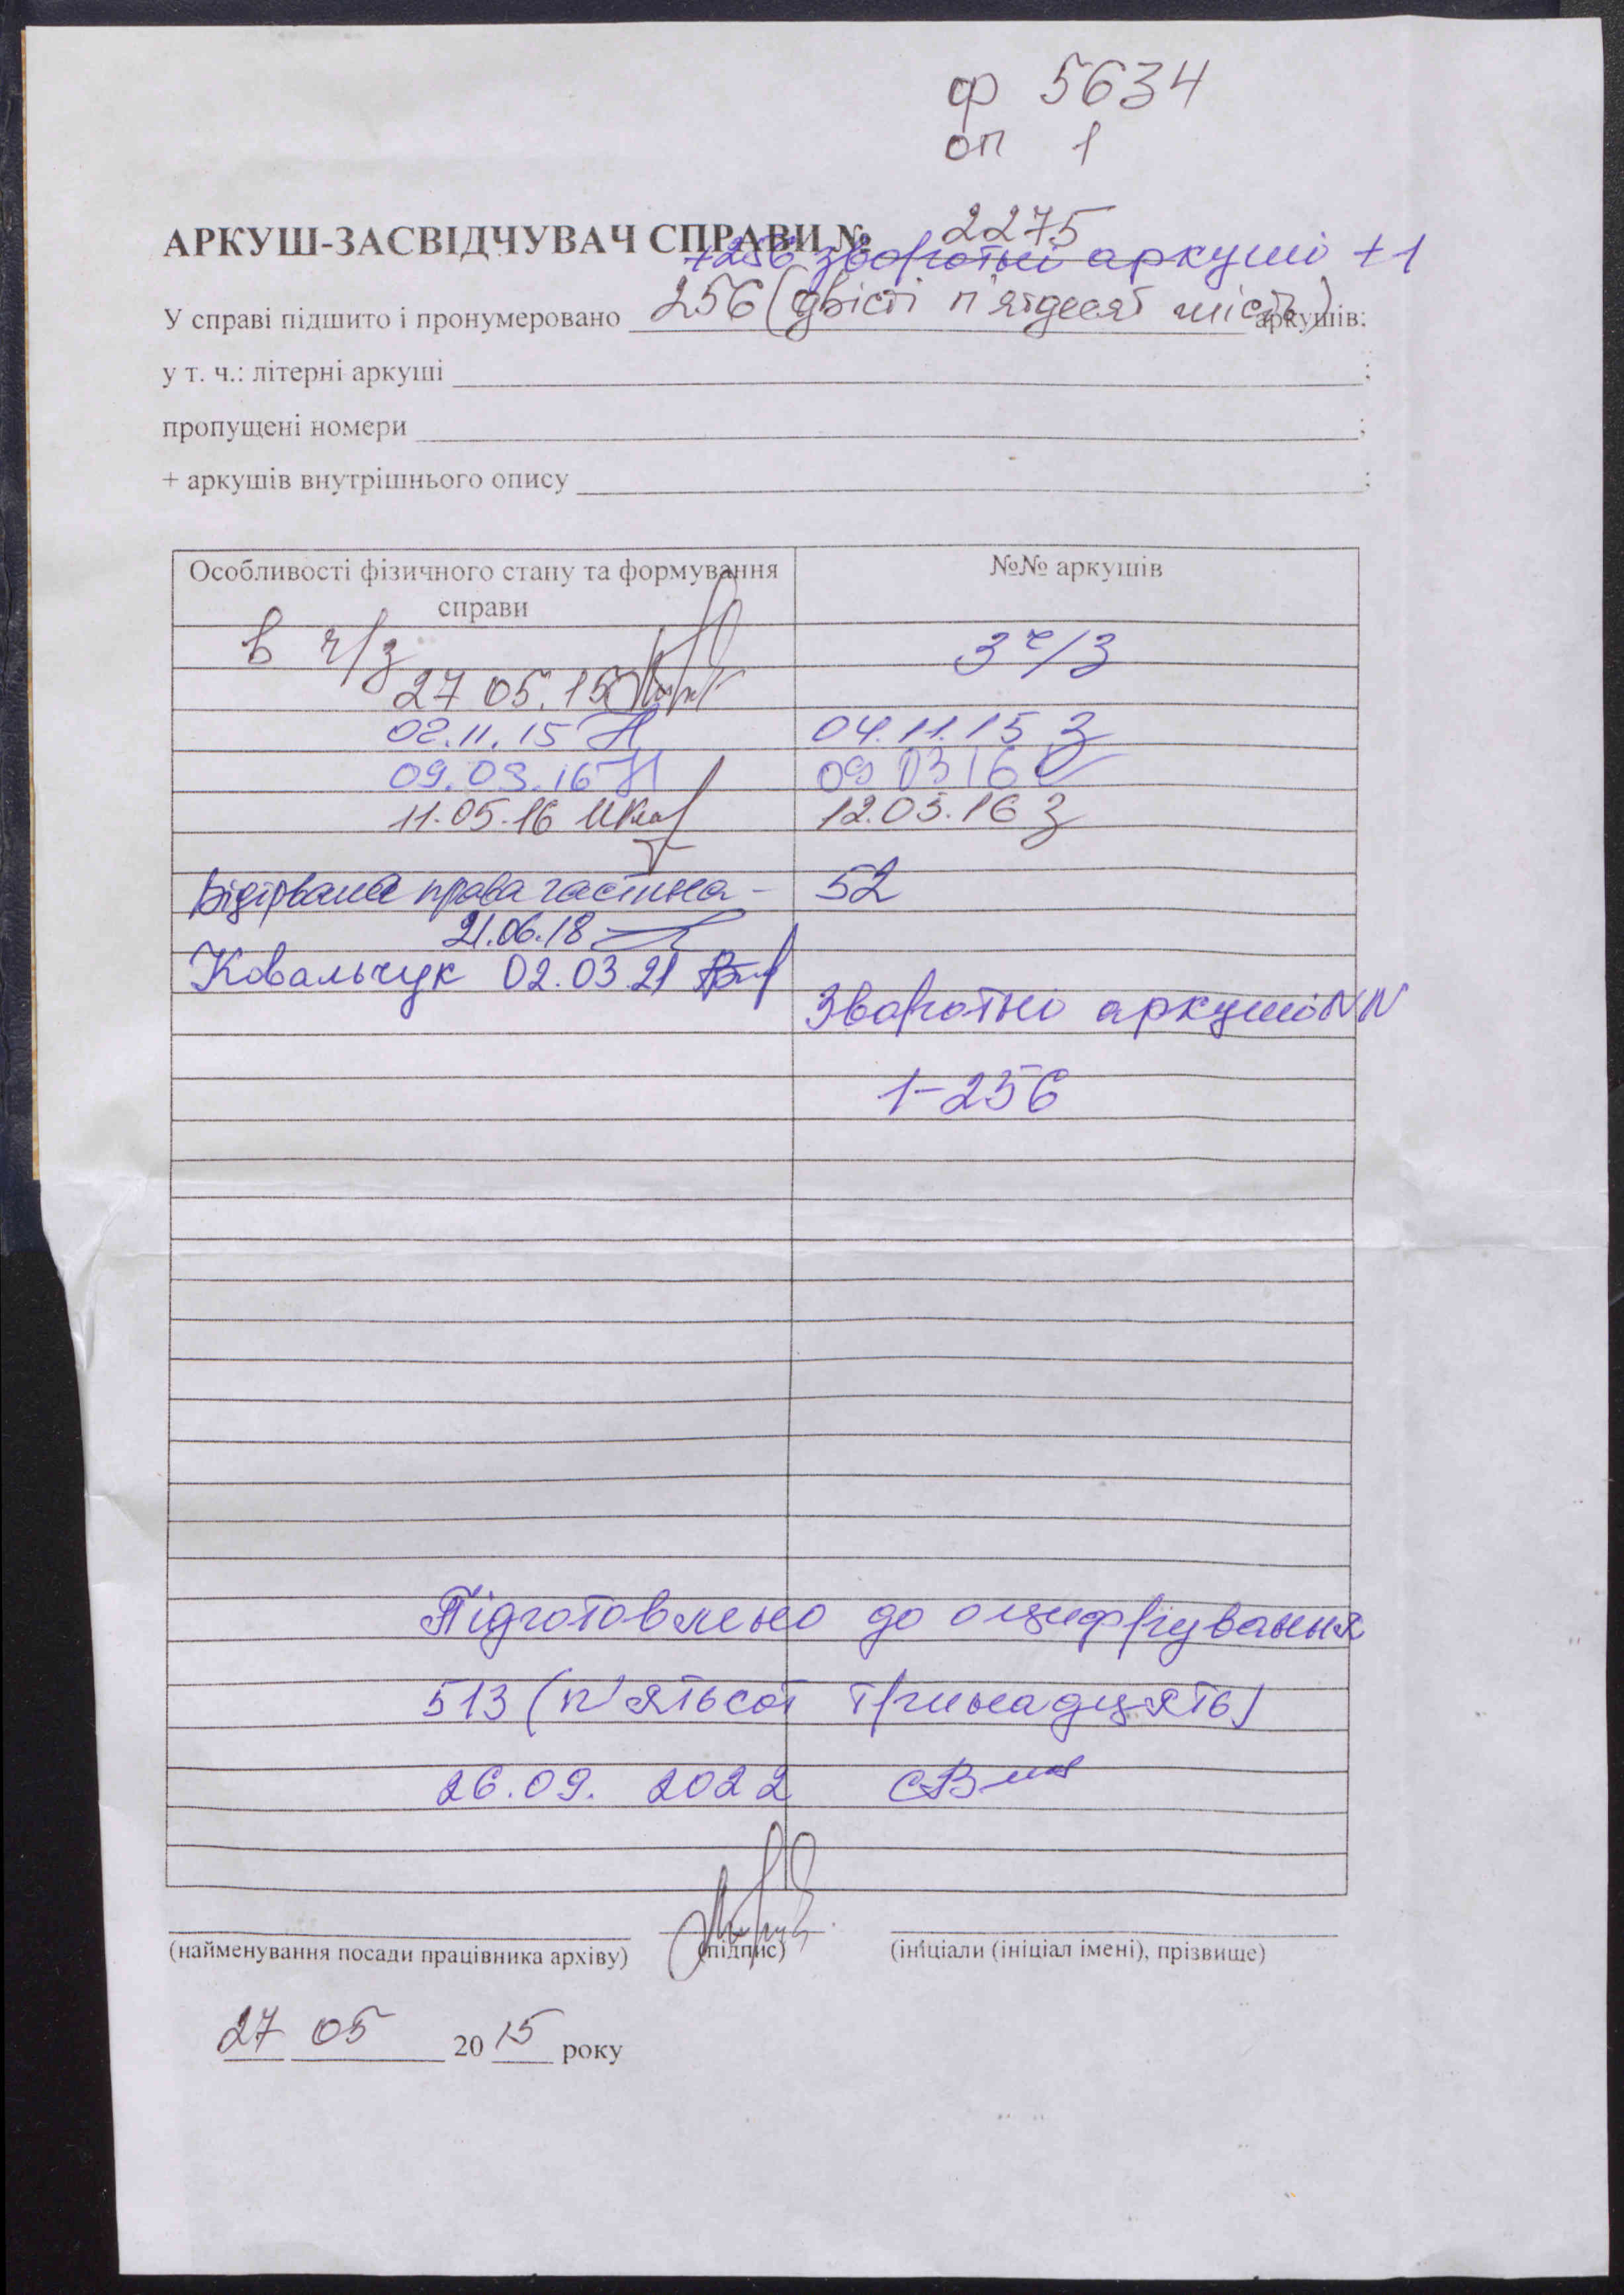 ф 5634
оп 1
2275
АРКУШ-ЗАСВІДЧУВАЧ СПРАВИ №
+256 зворотні аркуші +1
У справі підшито і пронумеровано 256 (двісті п'ятдесят шість) аркушів:
у т. ч.: літерні аркуші ;
пропущені номери ;
+ аркушів внутрішнього опису ;
Особливості фізичного стану та формування справи №№ аркушів
в ч/з З ч/З
27 05.15
02.11.15 04.11.15 З
09.03.16 09 03 16
11.05.16 12.05.16 З
Відірвана права частина - 52
21.06.18
Ковальчук 02.03.21
Зворотні аркуші NN
1-256
Підготовлено до оцифрування
513 (п'ятьсот тринадцять)
26.09. 2022
(найменування посади працівника архіву) (підпис) (ініціали (ініціал імені), прізвище)
27 05 2015 року